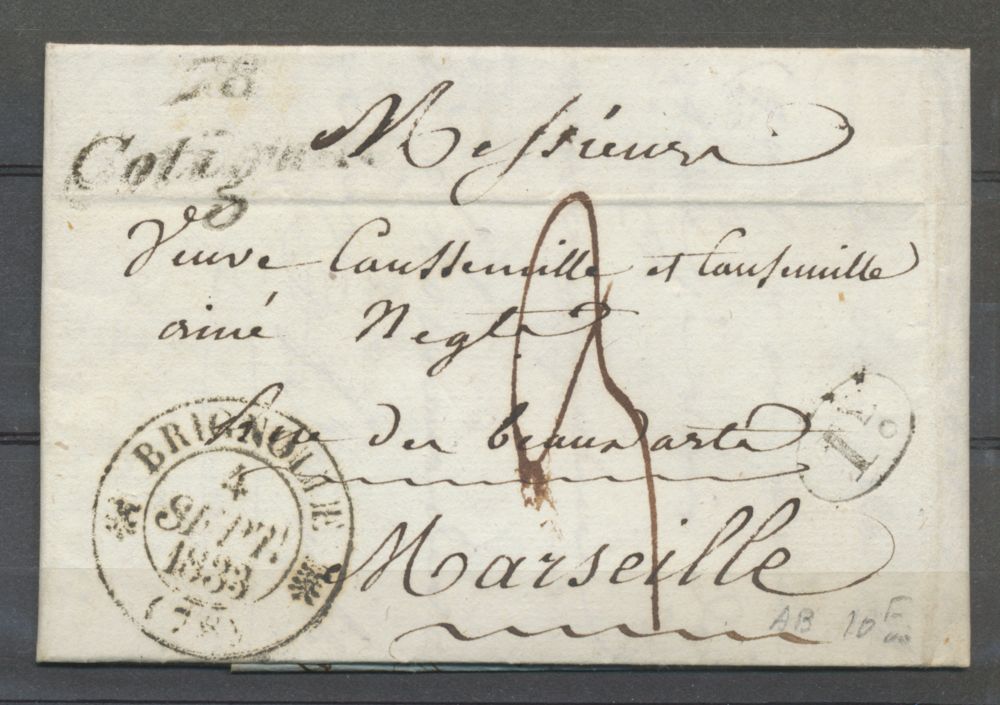 78
Cotignac
Messieurs
Veuve Caussemille et Causemille
ainé Negts
Rue des beaux arts
Marseille
BRIGNOLLE
4
SEPT.
1833
(78)
1 D.
AB 10F